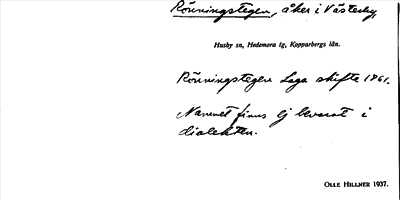 Rönningstegen, åker i Västerby,
Husby sn, Hedemora tg, Kopparbergs län.
Rönningstegen Laga skifte 1861.
Namnet finns ej bevarat i
dialekten.
OLLE HILLNER 1937.